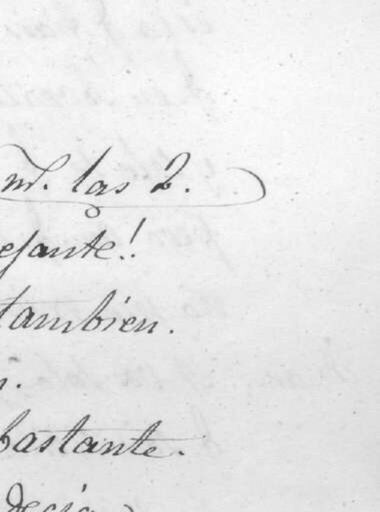 m. las 2.
ejante!
tambien.
n.
bastante.
decia